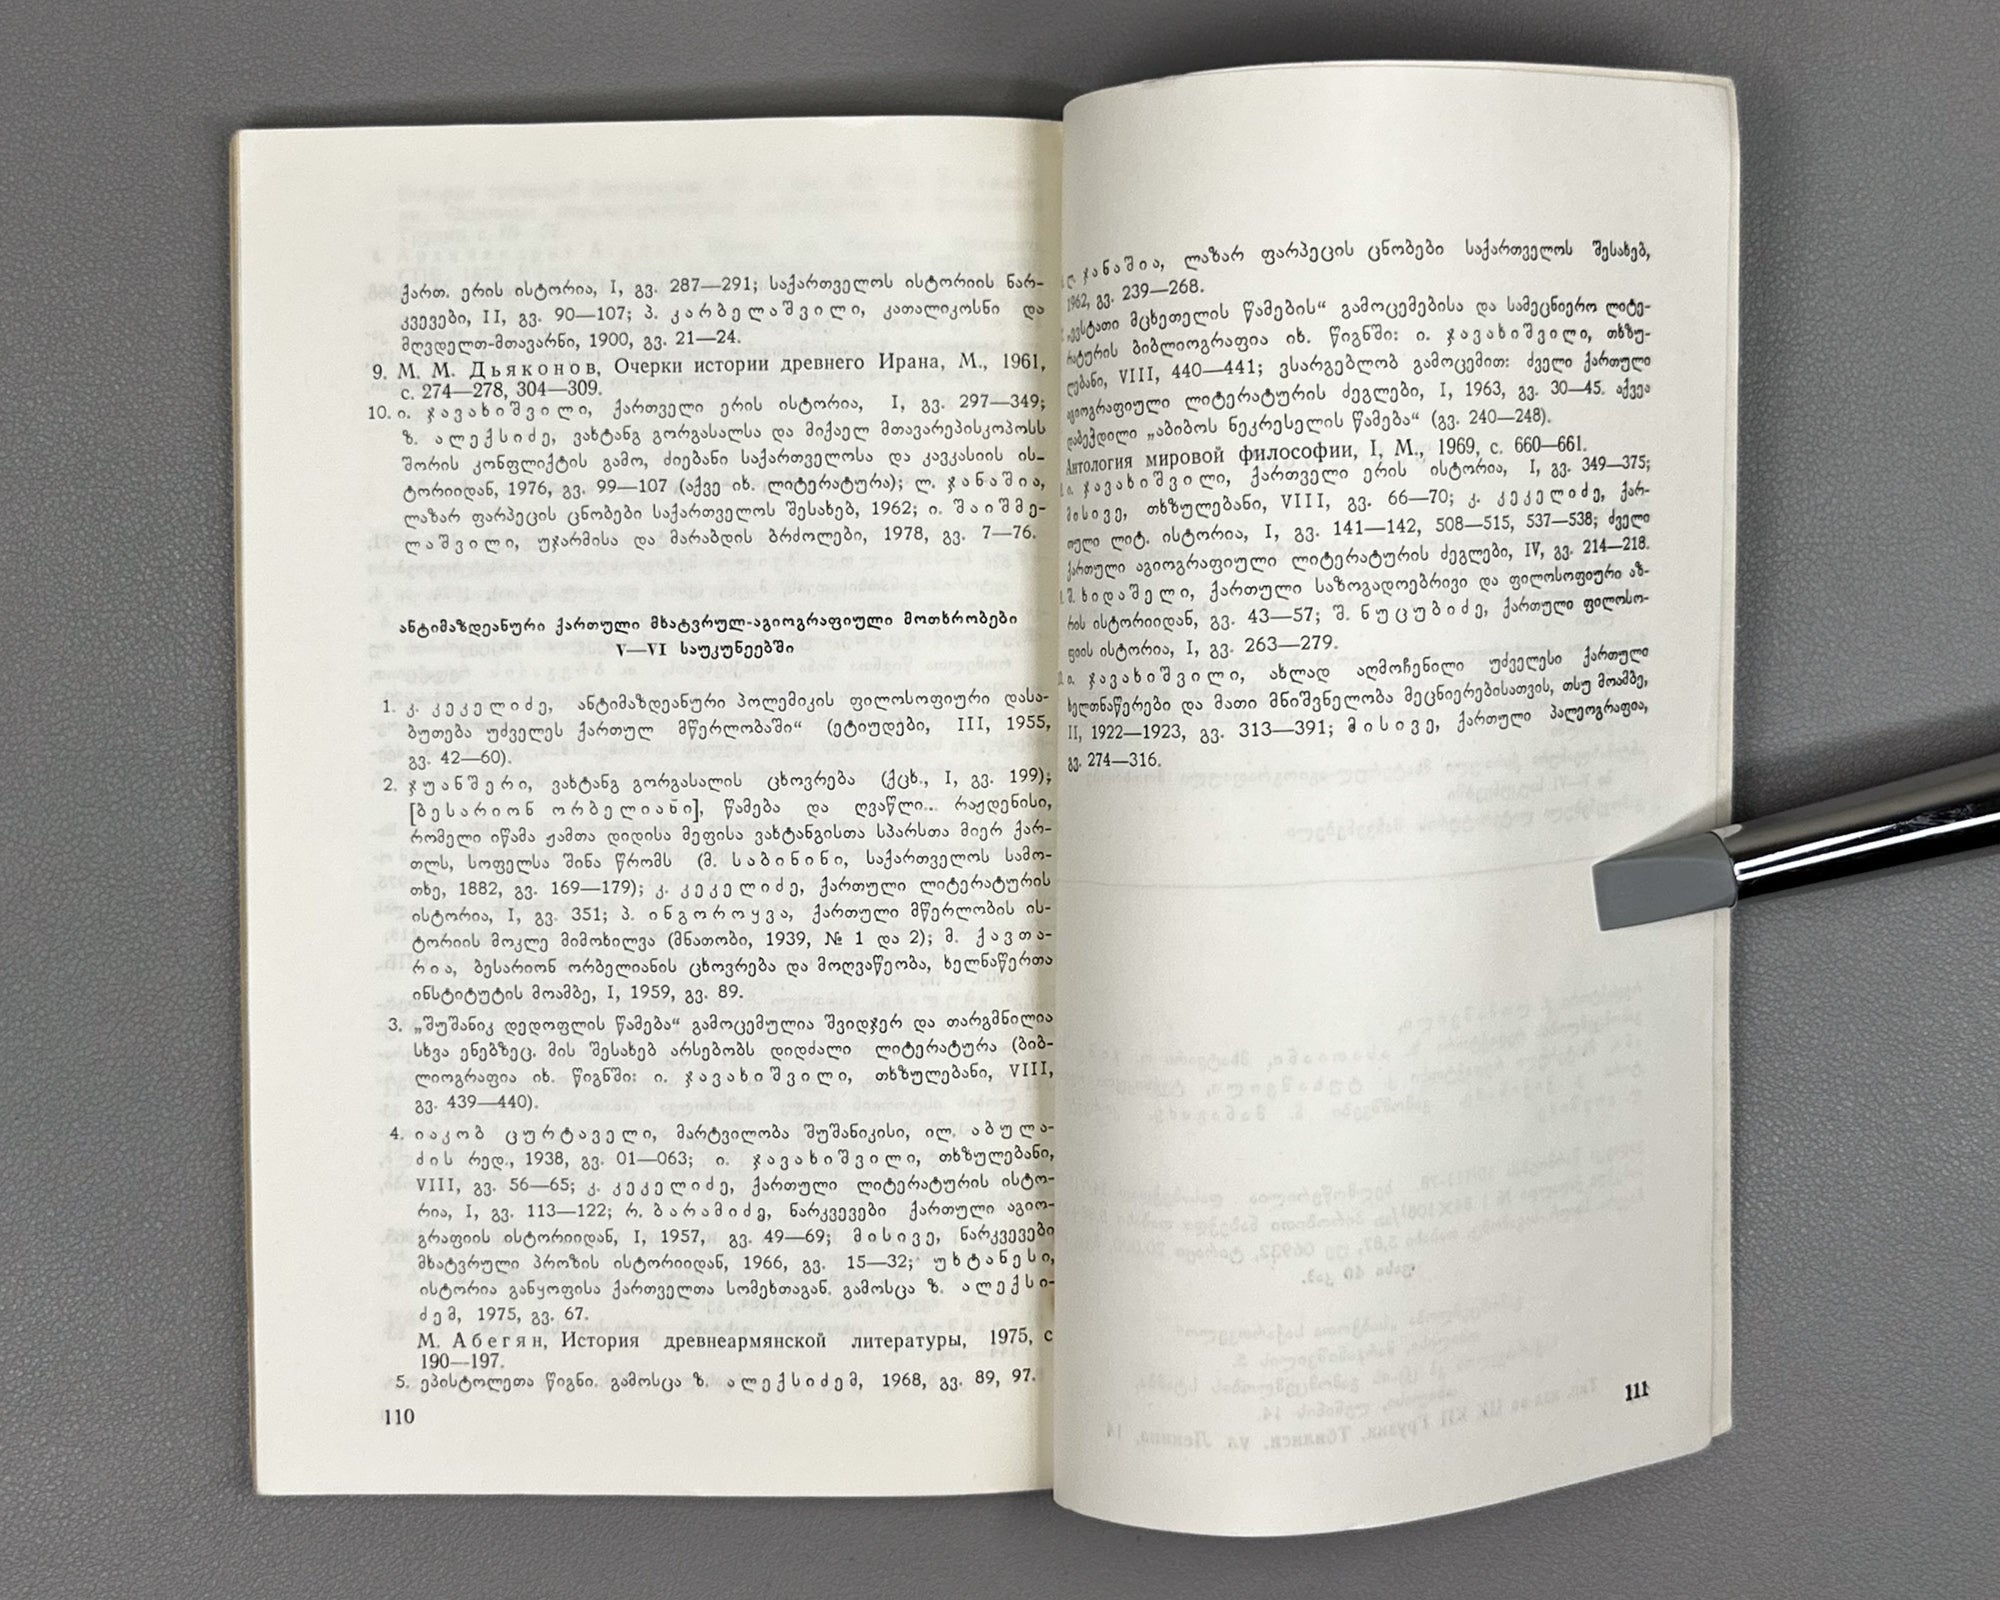 ქართ. ერის ისტორია, I, გვ. 287—291; საქართველოს ისტორიის ნარ-
კვევები, II, გვ. 90—107; პ. კარბელაშვილი, კათალიკოსნი და
მღვდელთ-მთავარნი, 1900, გვ. 21—24.
9. М. М. Дьяконов, Очерки истории древнего Ирана, М., 1961,
с. 274—278, 304—309.
10. ი. ჯავახიშვილი, ქართველი ერის ისტორია, I, გვ. 297—349;
ზ. ალექსიძე, ვახტანგ გორგასალსა და მიქაელ მთავარეპისკოპოსს
შორის კონფლიქტის გამო, ძიებანი საქართველოსა და კავკასიის ის-
ტორიიდან, 1976, გვ. 99—107 (აქვე იხ. ლიტერატურა); ლ. ჯანაშია,
ლაზარ ფარპეცის ცნობები საქართველოს შესახებ, 1962; ი. შაიშმე-
ლაშვილი, უჯარმისა და მარაბდის ბრძოლები, 1978, გვ. 7—76.
ანტიმაზდეანური ქართული მხატვრულ-აგიოგრაფიული მოთხრობები
V—VI საუკუნეებში
1. კ. კეკელიძე, ანტიმაზდეანური პოლემიკის ფილოსოფიური დასა-
ბუთება უძველეს ქართულ მწერლობაში“ (ეტიუდები, III, 1955,
გვ. 42—60).
2. ჯუანშერი, ვახტანგ გორგასალის ცხოვრება (ქცხ., I, გვ. 199);
[ბესარიონ ორბელიანი], წამება და ღვაწლი... რაჟდენისი,
რომელი იწამა ჟამთა დიდისა მეფისა ვახტანგისთა სპარსთა მიერ ქარ-
თლს, სოფელსა შინა წრომს (მ. საბინინი, საქართველოს სამო-
თხე, 1882, გვ. 169—179); კ. კეკელიძე, ქართული ლიტერატურის
ისტორია, I, გვ. 351; პ. ინგოროყვა, ქართული მწერლობის ის-
ტორიის მოკლე მიმოხილვა (მნათობი, 1939, № 1 და 2); მ. ქავთა-
რია, ბესარიონ ორბელიანის ცხოვრება და მოღვაწეობა, ხელნაწერთა
ინსტიტუტის მოამბე, I, 1959, გვ. 89.
3. „შუშანიკ დედოფლის წამება“ გამოცემულია შვიდჯერ და თარგმნილია
სხვა ენებზეც. მის შესახებ არსებობს დიდძალი ლიტერატურა (ბიბ-
ლიოგრაფია იხ. წიგნში: ი. ჯავახიშვილი, თხზულებანი, VIII,
გვ. 439—440).
4. იაკობ ცურტაველი, მარტვილობა შუშანიკისი, ილ. აბულა-
ძის რედ., 1938, გვ. 01—063; ი. ჯავახიშვილი, თხზულებანი,
VIII, გვ. 56—65; კ. კეკელიძე, ქართული ლიტერატურის ისტო-
რია, I, გვ. 113—122; რ. ბარამიძე, ნარკვევები ქართული აგიო-
გრაფიის ისტორიიდან, I, 1957, გვ. 49—69; მისივე, ნარკვევები
მხატვრული პროზის ისტორიიდან, 1966, გვ. 15—32; უხტანესი,
ისტორია განყოფისა ქართველთა სომეხთაგან. გამოსცა ზ. ალექსი-
ძემ, 1975, გვ. 67.
М. Абегян, История древнеармянской литературы, 1975, с
190—197.
5. ეპისტოლეთა წიგნი. გამოსცა ზ. ალექსიძემ, 1968, გვ. 89, 97.
110
ლ. ჯანაშია, ლაზარ ფარპეცის ცნობები საქართველოს შესახებ,
1962, გვ. 239—268.
„ევსტათი მცხეთელის წამების“ გამოცემებისა და სამეცნიერო ლიტე-
რატურის ბიბლიოგრაფია იხ. წიგნში: ი. ჯავახიშვილი, თხზუ-
ლებანი, VIII, 440—441; ვსარგებლობ გამოცემით: ძველი ქართული
აგიოგრაფიული ლიტერატურის ძეგლები, I, 1963, გვ. 30—45. აქვეა
დაბეჭდილი „აბიბოს ნეკრესელის წამება“ (გვ. 240—248).
Антология мировой философии, I, М., 1969, с. 660—661.
ი. ჯავახიშვილი, ქართველი ერის ისტორია, I, გვ. 349—375;
მისივე, თხზულებანი, VIII, გვ. 66—70; კ. კეკელიძე, ქარ-
თული ლიტ. ისტორია, I, გვ. 141—142, 508—515, 537—538; ძველი
ქართული აგიოგრაფიული ლიტერატურის ძეგლები, IV, გვ. 214—218.
შ. ხიდაშელი, ქართული საზოგადოებრივი და ფილოსოფიური აზ-
რის ისტორიიდან, გვ. 43—57; შ. ნუცუბიძე, ქართული ფილოსო-
ფიის ისტორია, I, გვ. 263—279.
ი. ჯავახიშვილი, ახლად აღმოჩენილი უძველესი ქართული
ხელთნაწერები და მათი მნიშვნელობა მეცნიერებისათვის, თსუ მოამბე,
II, 1922—1923, გვ. 313—391; მისივე, ქართული პალეოგრაფია,
გვ. 274—316.
111